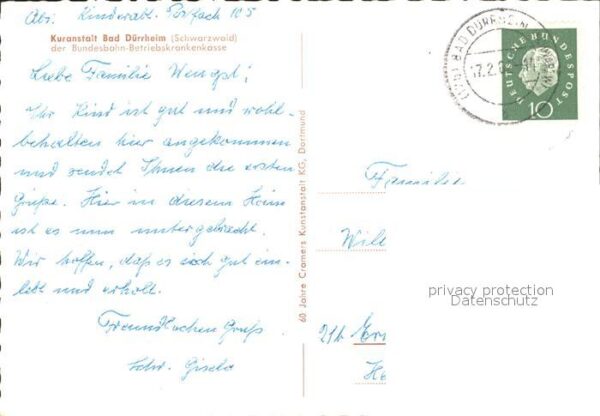 Abs. Kinderabt. Postfach 105
Kuranstalt Bad Dürrheim (Schwarzwald)
der Bundesbahn-Betriebskrankenkasse
Liebe Familie
Ihr Kind ist gut und wohl-
behalten hier angekommen
und sendet Ihnen die ersten
Grüße. Hier in diesem Heim
ist es nun untergebracht.
Wir hoffen, daß es sich gut ein-
lebt und erholt.
Freundlichen Gruß
Schw. Gisela
60 Jahre Cramers Kunstanstalt KG, Dortmund
BAD DÜRRHEIM
17.2.
DEUTSCHE BUNDESPOST
10
Familie
Wil
privacy protection
Datenschutz
21b